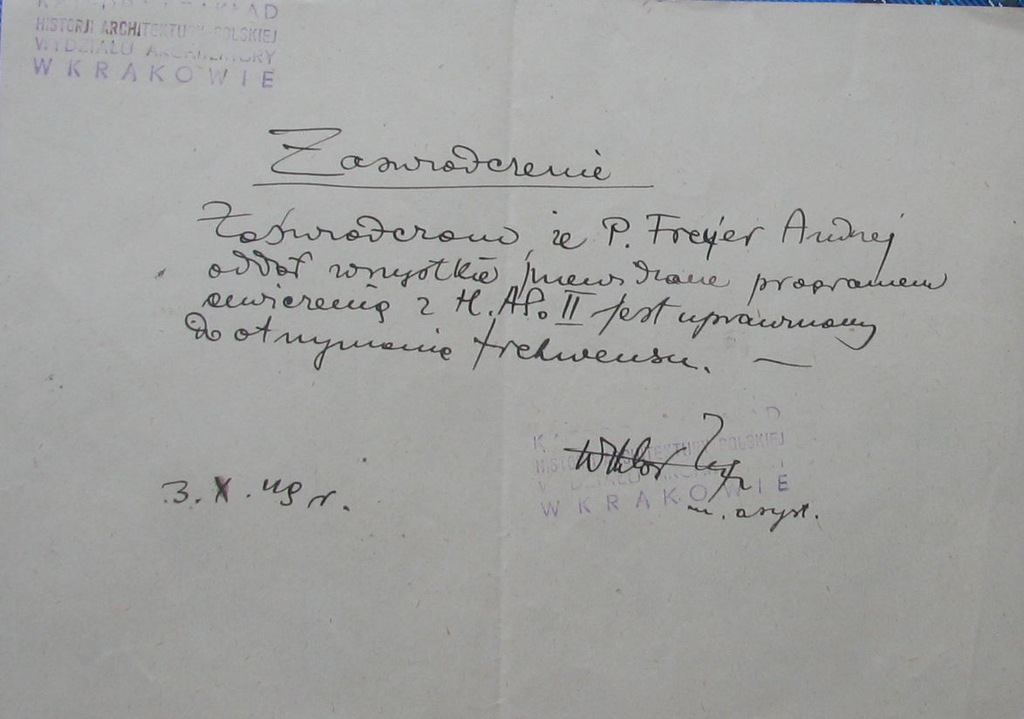 HISTORJI ARCHITEKTURY POLSKIEJ
WYDZIAŁU ARCHITEKTURY
W KRAKOWIE
Zaświadczenie
Zaświadczam, że P. Freyer Andrzej
oddał wszystkie przewidziane programem
ćwiczenia z H. A. P. II jest uprawniony
do otrzymania frekwensu. —
HISTORJI ARCHITEKTURY POLSKIEJ
W KRAKOWIE
3. X. 49 r.
Wiktor
m. asyst.